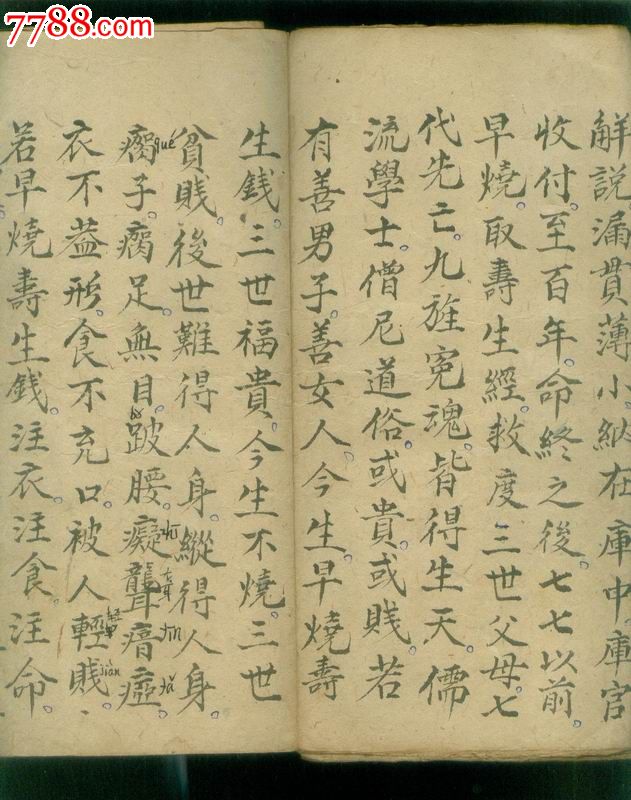 7788.com
解說漏貫薄小納在庫中。庫官
收付至百年命終之後。七七以前。
早燒。取壽生經。救度三世父母。七
代先亡。九族冤魂。皆得生天。儒
流學士僧尼道俗。或貴或賤。若
有善男子。善女人今生早燒壽
生錢。三世福貴。今生不燒。三世
貧賤。後世難得人身。縱得人身。
瘸子。瘸足無目。跛腰。癡聾瘖瘂。
qué
衣不蓋形。食不充口。被人輕賤。
jiàn
若早燒壽生錢。注衣注食。注命